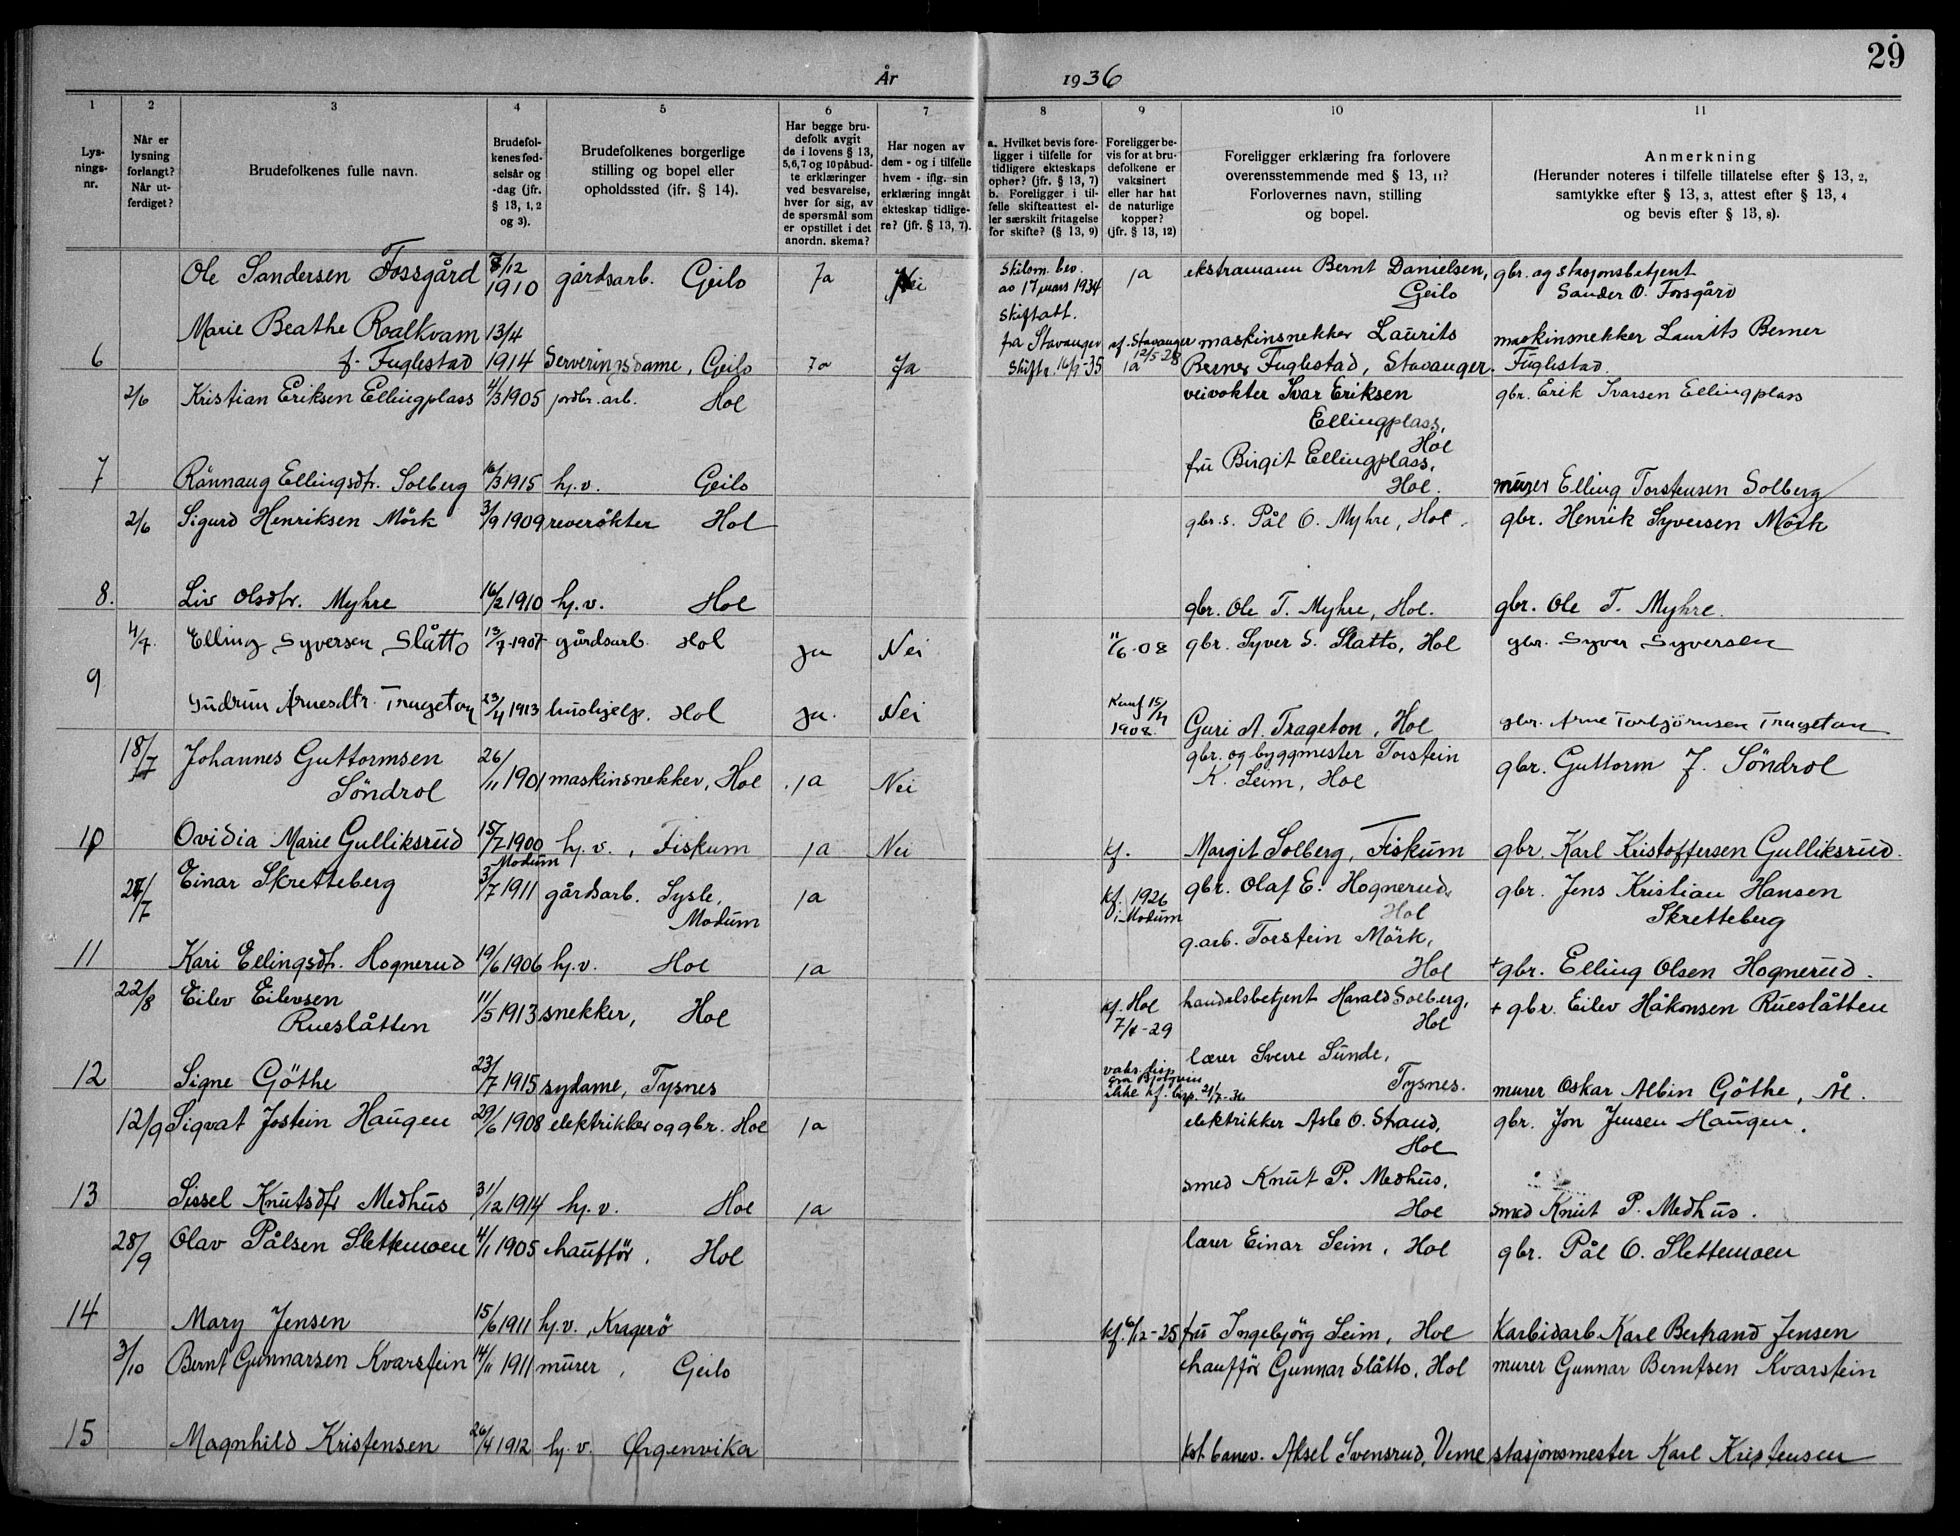 29
År 1936
1 2 3 4 5 6 7 8 9 10 11
Lys-
nings-
nr.
Når er
lysning
forlangt?
Når ut-
ferdiget?
Brudefolkenes fulle navn.
Brudefol-
kenes fød-
selsår og
-dag (jfr.
§ 13, 1, 2
og 3).
Brudefolkenes borgerlige
stilling og bopel eller
opholdssted (jfr. § 14).
Har begge bru-
defolk avgit
de i lovens § 13,
5,6,7 og 10 påbud-
te erklæringer
ved besvarelse,
hver for sig, av
de spørsmål som
er opstillet i det
anordn. skema?
Har nogen av
dem - og i tilfelle
hvem - iflg. sin
erklæring inngått
ekteskap tidlige-
re? (jfr. § 13, 7).
a. Hvilket bevis fore-
ligger i tilfelle for
tidligere ekteskaps
ophør? (jfr. § 13, 7)
b. Foreligger i til-
felle skifteattest el-
ler særskilt fritagelse
for skifte? (§ 13, 9)
Foreligger be-
vis for at bru-
defolkene er
vaksinert
eller har hat
de naturlige
kopper?
(jfr. § 13, 12)
Foreligger erklæring fra forlovere
overensstemmende med § 13, 11?
Forlovernes navn, stilling
og bopel.
Anmerkning
(Herunder noteres i tilfelle tillatelse efter § 13, 2,
samtykke efter § 13, 3, attest efter § 13, 4
og bevis efter § 13, 8).
Ole Sandersen Fossgård 8/12 1910 gårdsarb. Geilo Ja Nei Skilsm. bev. av 17 mars 1934 ja ekstramann Bernt Danielsen, Geilo gbr. og stasjonsbetjent Sander O. Fossgård
6 Marie Beathe Roalkvam f. Fuglestad 13/4 1914 Serveringsdame, Geilo Ja Ja Skiftatt. fra Stavanger Skiftr. 16/9-35 kf. Stavanger 12/5-28 ja maskinsnekker Laurits Berner Fuglestad, Stavanger. maskinsnekker Laurits Berner Fuglestad.
2/6 Kristian Eriksen Ellingplass 4/3 1905 jordbr. arb. Hol veivokter Ivar Eriksen Ellingplass, Hol gbr. Erik Ivarsen Ellingplass
7 Rönnaug Ellingsdtr. Solberg 16/3 1915 hj.v. Geilo fru Birgit Ellingplass, Hol. murer Elling Torstensen Solberg
2/6 Sigurd Henriksen Mörk 3/9 1909 reverökter Hol gbr.s. Pål O. Myhre, Hol. gbr. Henrik Syversen Mörk
8. Liv Olsdtr. Myhre 16/2 1910 hj.v. Hol gbr. Ole T. Myhre, Hol. gbr. Ole T. Myhre.
4/7. Elling Syversen Slåtto 13/7-1907 gårdsarb. Hol ja Nei 11/6-08 gbr. Syver S. Slatto, Hol gbr. Syver Syversen
9 Gudrun Arnesdtr. Trageton 23/4 1913 hushjelp. Hol ja. Nei 1908. Guri A. Trageton, Hol gbr. Arne Torbjörnsen Trageton
18/7 Johannes Guttormsen Söndrol 26/11 1901 maskinsnekker, Hol ja Nei gbr. og byggmester Torstein K. Seim, Hol gbr. Guttorm J. Söndrol
10 Ovidia Marie Gulliksrud 15/7 1900 hj.v., Fiskum ja Nei kf. Margit Solberg, Fiskum gbr. Karl Kristoffersen Gulliksrud.
28/7 Einar Skretteberg Modum 3/7 1911 gårdsarb. Sysle, Modum ja kf. 1926 i Modum gbr. Olaf E. Hognerud, Hol gbr. Jens Kristian Hansen Skretteberg
11 Kari Ellingsdtr. Hognerud 19/6 1906 hj.v. Hol ja g.arb. Torstein Mörk, Hol + gbr. Elling Olsen Hognerud.
22/8 Eilev Eilevsen Rueslåtten 11/5 1913 snekker, Hol kf. Hol 7/4-29 handelsbetjent Harald Solberg, Hol + gbr. Eilev Håkonsen Rueslåtten
12 Signe Göthe 23/7 1915 sydame, Tysnes lærer Sverre Sunde, Tysnes. murer Oskar Albin Göthe, Ål.
12/9 Sigvat Jostein Haugen 29/6 1908 elektrikker og gbr. Hol ja elektrikker Asle O. Strand, Hol gbr. Jon Jensen Haugen.
13 Sissel Knutsdtr Medhus 31/12 1914 hj.v. Hol ja smed Knut P. Medhus, Hol smed Knut P. Medhus.
28/9 Olav Pålsen Slettemoen 4/1 1905 chaufför, Hol lærer Einar Seim, Hol gbr. Pål O. Slettemoen
14 Mary Jensen 15/6 1911 hj.v., Kragerö kf. 6/12-25 fru Ingebjörg Seim, Hol Karbidarb. Karl Bertrand Jensen
3/10 Bernt Gunnarsen Kvarstein 14/11 1911 murer, Geilo chaufför Gunnar Slåtto, Hol murer Gunnar Berntsen Kvarstein
15 Magnhild Kristensen 26/4 1912 hj.v. Ørgenvika kst. banev. Aksel Svensrud, Veme stasjonsmester Karl Kristensen